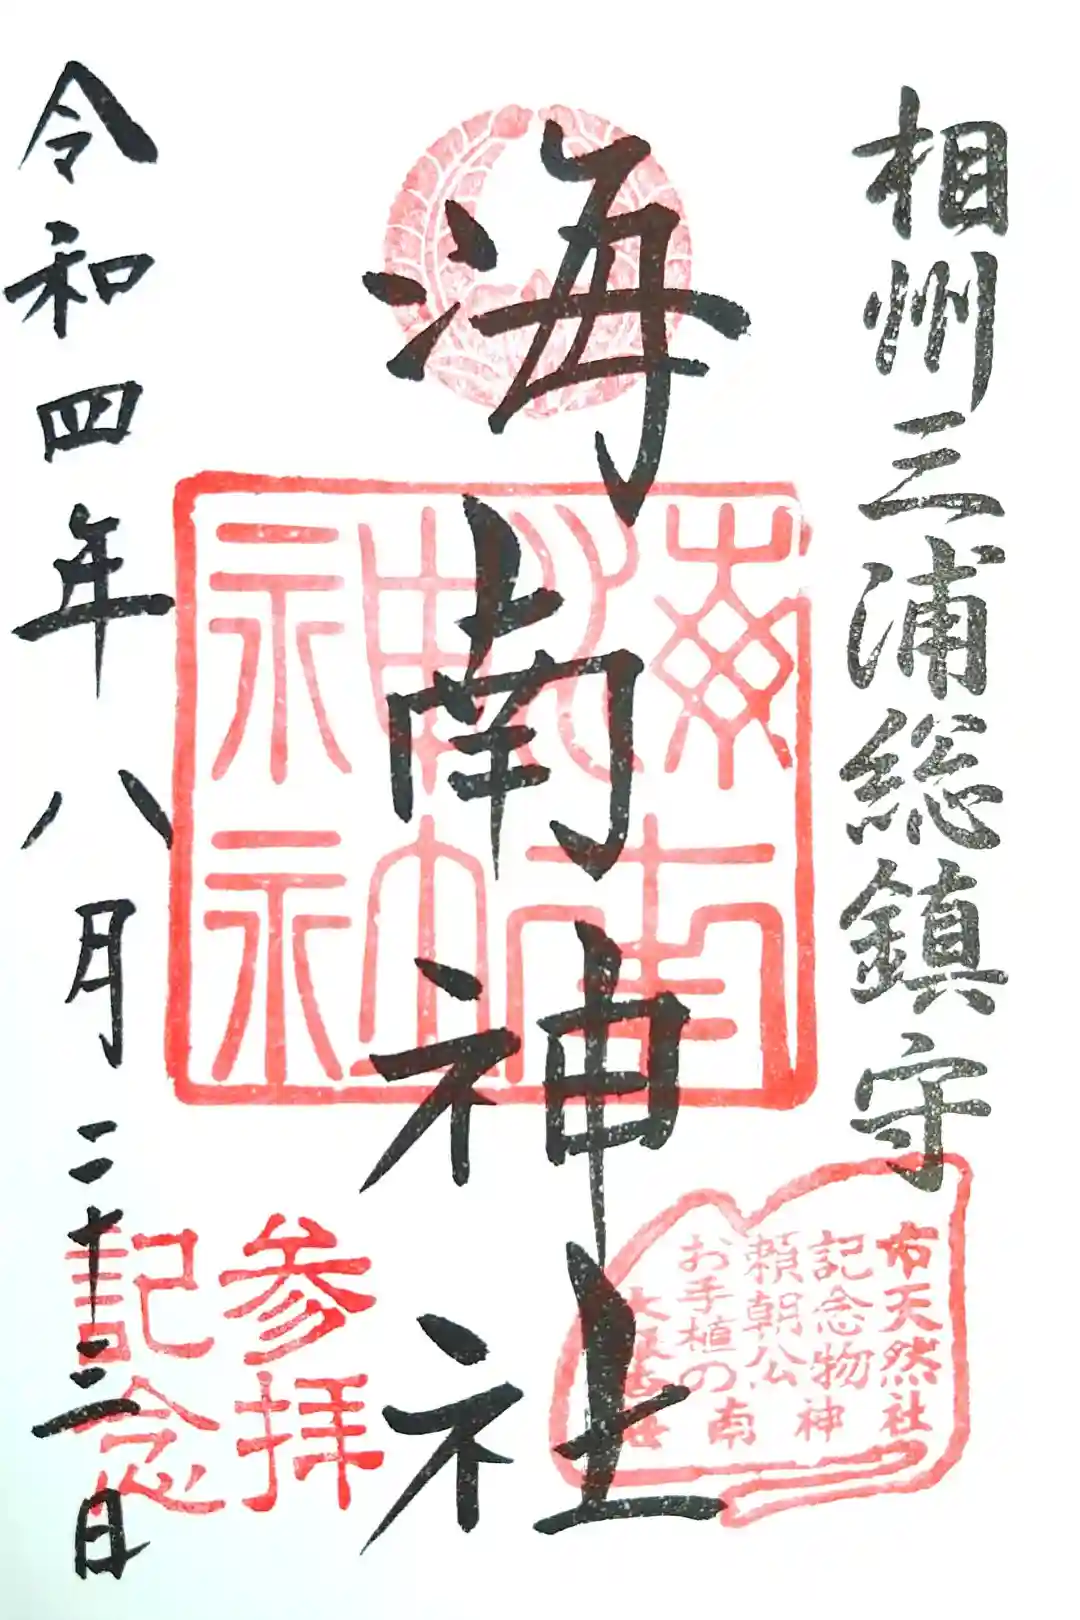 相州三浦総鎮守
海南神社
令和四年八月二十二日
海南
神社
市天然
記念物
頼朝公
お手植の
大銀杏
海南神社
参拝
記念